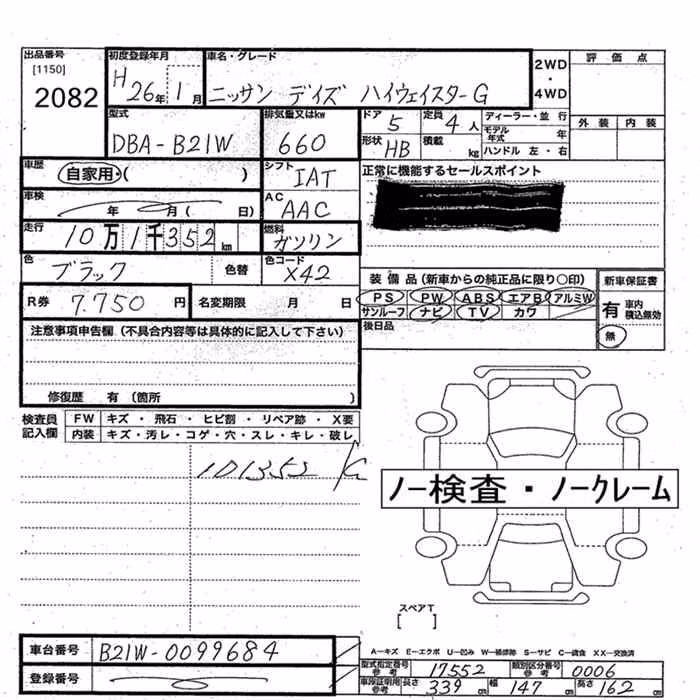 出品番号 初度登録年月 車名・グレード 評価点
[1150] 2082 H26年1月 ニッサン デイズ ハイウェイスターG 2WD・4WD
外装 内装
型式 排気量又はkw ドア 定員 ディーラー・並行
DBA-B21W 660 5 4人 モデル年式 年
形状 HB 積載 kg ハンドル 左・右
車歴 自家用・( ) シフト IAT 正常に機能するセールスポイント
車検 年 月( 日) AC AAC
走行 10万1千352km 燃料 ガソリン
色 ブラック 色替 色コード X42
装備品(新車からの純正品に限り○印) 新車保証書
R券 7.750円 名変期限 月 日 PS PW ABS エアB アルミW 有 車内積込無効
サンルーフ ナビ TV カワ
後日品 無
注意事項申告欄(不具合内容等は具体的に記入して下さい)
修復歴 有(箇所 )
検査員記入欄 FW キズ・飛石・ヒビ割・リペア跡・X要
内装 キズ・汚レ・コゲ・穴・スレ・キレ・破レ
101352
ノー検査・ノークレーム
スペアT
[ ]
車台番号 B21W-0099684
A-キズ E-エクボ U-凹み W-補修跡 S-サビ C-腐食 XX-交換済
登録番号 型式指定番号 参考 17552 類別区分番号 参考 0006
車庫証明用 参考 長さ 339cm 幅 147 高さ 162cm